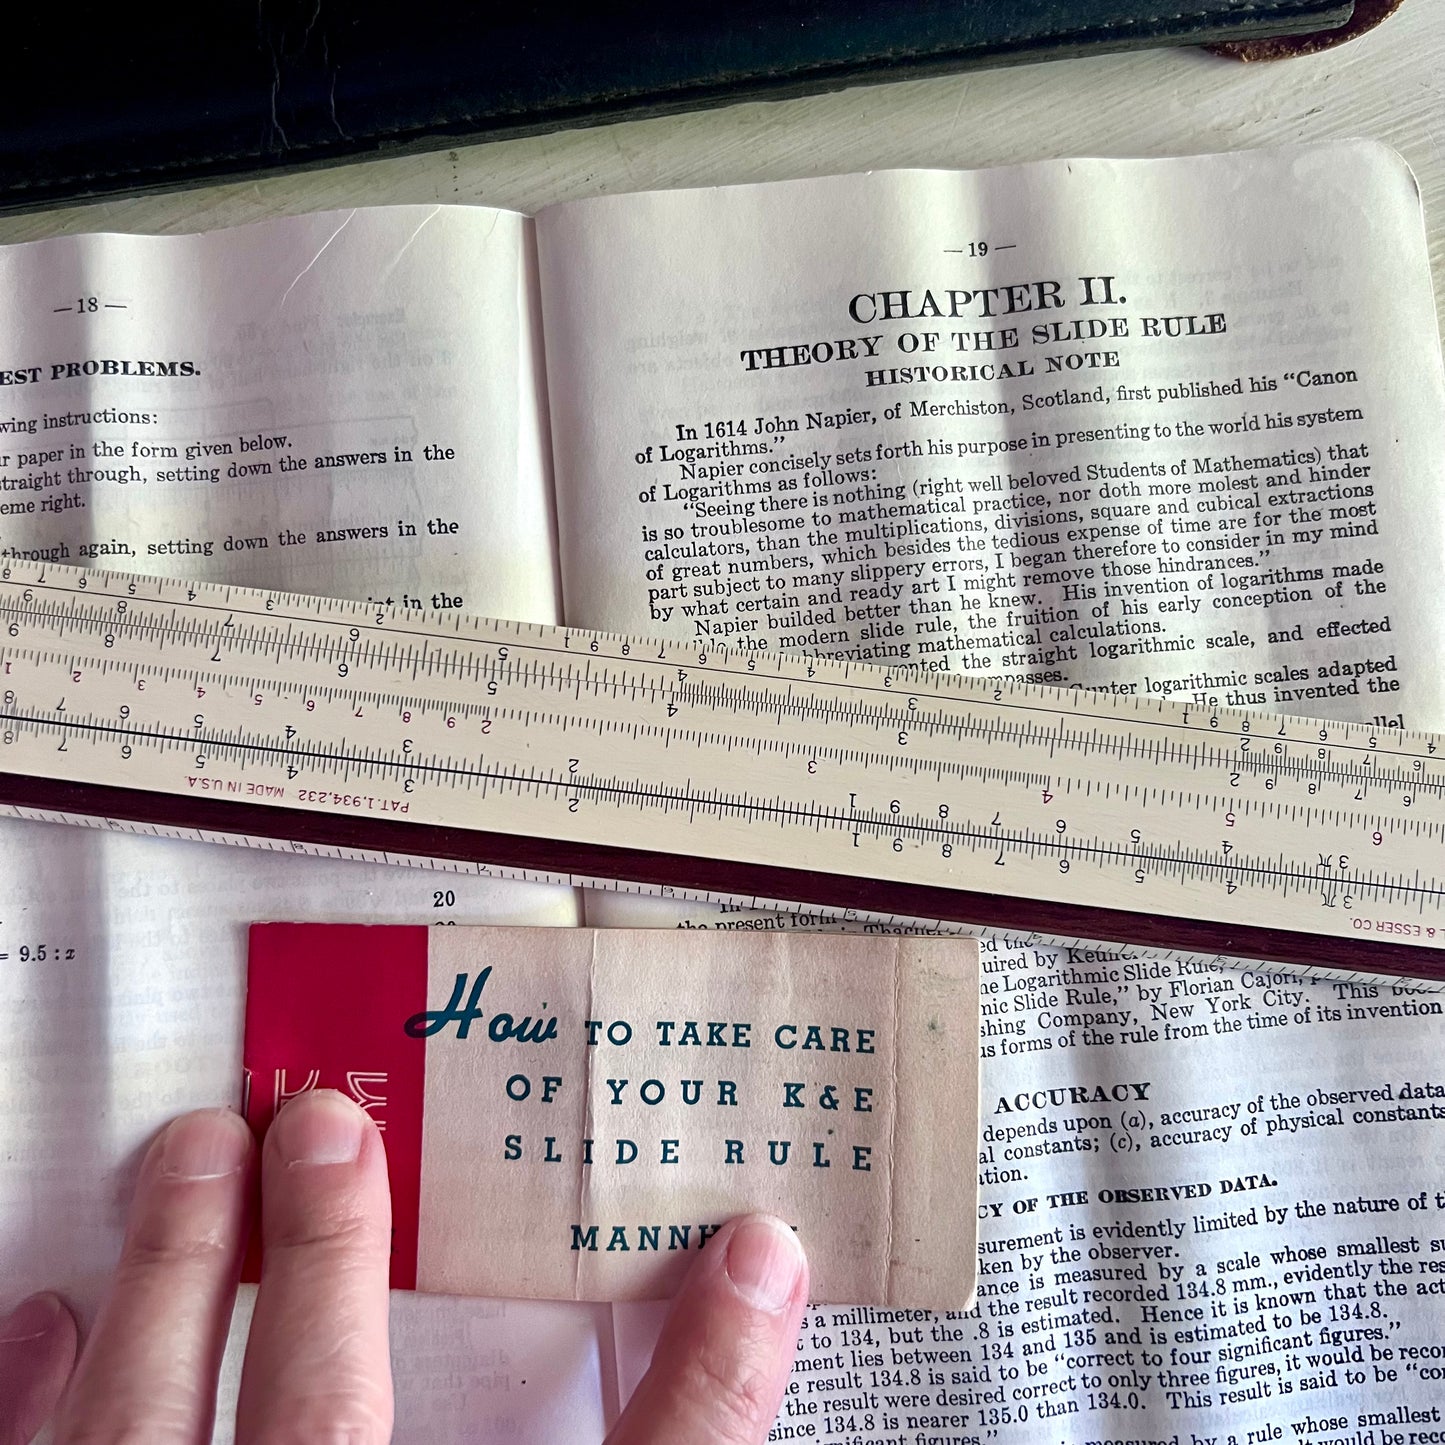 —18—
EST PROBLEMS.
wing instructions:
r paper in the form given below.
traight through, setting down the answers in the
eme right.
through again, setting down the answers in the
in the
20
= 9.5 : x
—19—
CHAPTER II.
THEORY OF THE SLIDE RULE
HISTORICAL NOTE
In 1614 John Napier, of Merchiston, Scotland, first published his “Canon
of Logarithms.”
Napier concisely sets forth his purpose in presenting to the world his system
of Logarithms as follows:
“Seeing there is nothing (right well beloved Students of Mathematics) that
is so troublesome to mathematical practice, nor doth more molest and hinder
calculators, than the multiplications, divisions, square and cubical extractions
of great numbers, which besides the tedious expense of time are for the most
part subject to many slippery errors, I began therefore to consider in my mind
by what certain and ready art I might remove those hindrances.”
Napier builded better than he knew. His invention of logarithms made
the modern slide rule, the fruition of his early conception of the
abbreviating mathematical calculations.
nted the straight logarithmic scale, and effected
mpasses.
Gunter logarithmic scales adapted
He thus invented the
llel
PAT.1,934,232 MADE IN U.S.A.
& ESSER CO.
the present form
ed the
uired by
he Logarithmic Slide Rule,
nic Slide Rule,” by Florian Cajori,
shing Company, New York City. This
us forms of the rule from the time of its invention
ACCURACY
depends upon (a), accuracy of the observed data
al constants; (c), accuracy of physical constants
ation.
CY OF THE OBSERVED DATA.
surement is evidently limited by the nature of t
ken by the observer.
ance is measured by a scale whose smallest su
s a millimeter, and the result recorded 134.8 mm., evidently the res
t to 134, but the .8 is estimated. Hence it is known that the act
ment lies between 134 and 135 and is estimated to be 134.8.
e result 134.8 is said to be “correct to four significant figures.”
the result were desired correct to only three figures, it would be recor
since 134.8 is nearer 135.0 than 134.0. This result is said to be “cor
nificant figures.”
by a rule whose smallest
would be reco
How TO TAKE CARE
OF YOUR K&E
SLIDE RULE
MANNH